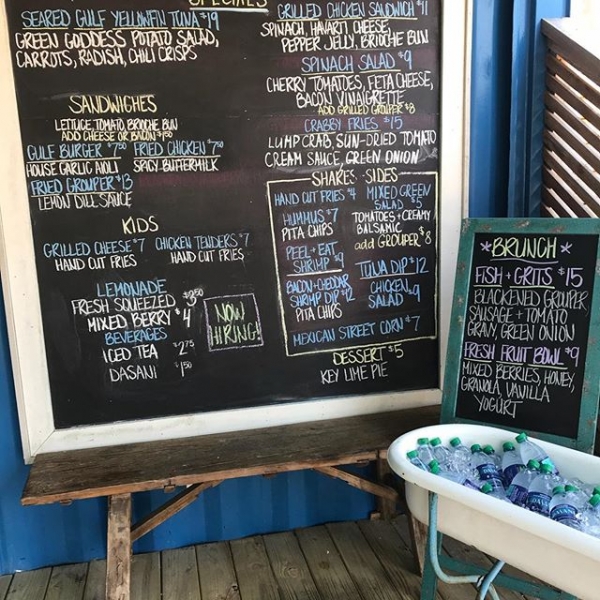 SPECIALS
SEARED GULF YELLOWFIN TUNA $19
GREEN GODDESS POTATO SALAD,
CARROTS, RADISH, CHILI CRISPS
GRILLED CHICKEN SANDWICH $11
SPINACH, HAVARTI CHEESE,
PEPPER JELLY, BRIOCHE BUN
SPINACH SALAD $9
CHERRY TOMATOES, FETA CHEESE,
BACON VINAIGRETTE
ADD GRILLED GROUPER $8
CRABBY FRIES $15
LUMP CRAB, SUN-DRIED TOMATO
CREAM SAUCE, GREEN ONION
SANDWICHES
LETTUCE TOMATO, BRIOCHE BUN
ADD CHEESE OR BACON $1.50
GULF BURGER $7.50 FRIED CHICKEN $7.50
HOUSE GARLIC AIOLI SPICY BUTTERMILK
FRIED GROUPER $13
LEMON DILL SAUCE
KIDS
GRILLED CHEESE $7 CHICKEN TENDERS $7
HAND CUT FRIES HAND CUT FRIES
LEMONADE
FRESH SQUEEZED $3.50
MIXED BERRY $4
BEVERAGES
ICED TEA $2.75
DASANI $1.50
NOW
HIRING!
SHAKES - SIDES
HAND CUT FRIES $4
HUMMUS $7
PITA CHIPS
PEEL + EAT
SHRIMP $9
BACON + CHEDDAR
SHRIMP DIP $12
PITA CHIPS
MIXED GREEN
SALAD $5
TOMATOES + CREAMY
BALSAMIC
add GROUPER $8
TUNA DIP $12
CHICKEN
SALAD $9
MEXICAN STREET CORN $7
DESSERT $5
KEY LIME PIE
*BRUNCH*
FISH + GRITS $15
BLACKENED GROUPER
SAUSAGE + TOMATO
GRAVY, GREEN ONION
FRESH FRUIT BOWL $9
MIXED BERRIES, HONEY,
GRANOLA, VANILLA
YOGURT